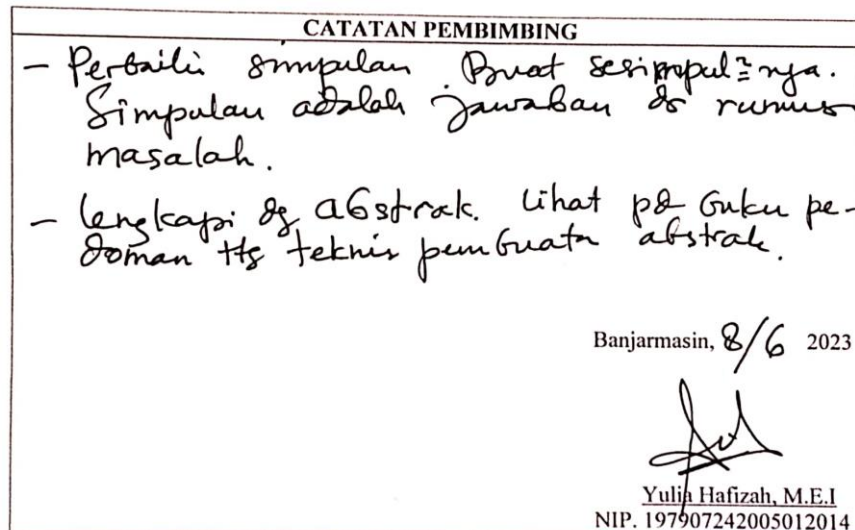 CATATAN PEMBIMBING
- Perbaiki simpulan Buat sesimpul²nya.
Simpulan adalah jawaban dr rumus
masalah.
- lengkapi dg abstrak. Lihat pd buku pe-
doman ttg teknis pembuata abstrak.
Banjarmasin, 8/6 2023
Yulia Hafizah, M.E.I
NIP. 197907242005012014